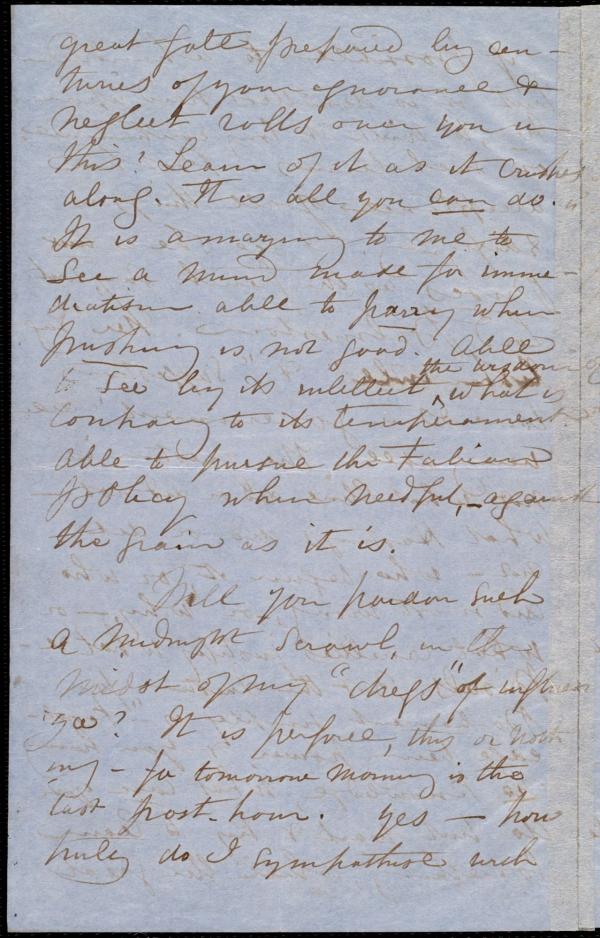 great fate prepared by cen-
turies of your ignorance &
neglect rolls over you in
this! Learn of it as it crushes
along. It is all you can do.
It is amazing to me to
see a mind made for imme-
diatism able to parry when
pushing is not good. Able
to see by its intellect, the wisdom of
what is
contrary to its temperament.
Able to pursue the Fabian
policy when needful, - against
the grain as it is.
Will you pardon such
a midnight scrawl, in the
midst of my "dregs" of influen
za? It is perforce, this or noth
ing - for tomorrow morning is the
last post-hour. Yes - how
truly do I sympathise with